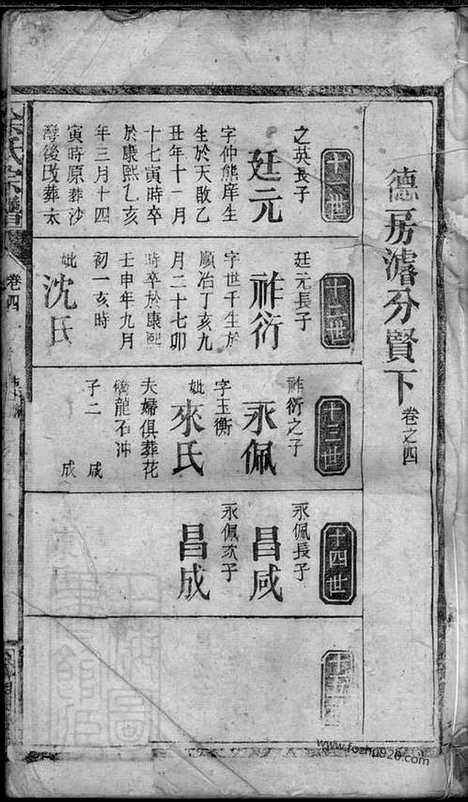 德房濬分賢下 卷之四
十一世
之英長子
廷元
字仲熊庠生
生於天啟乙
丑年十一月
十七寅時卒
於康熙乙亥
年三月十四
寅時原葬沙
灣後改葬太
十二世
廷元長子
祚衍
字世千生於
順治丁亥九
月二十七卯
時卒於康熙
壬申年九月
初一亥時
妣沈氏
十三世
祚衍之子
永佩
字玉衡
妣來氏
夫婦俱葬花
橋龍石沖
子二 咸 成
十四世
永佩長子
昌咸
永佩次子
昌成
卷四
www.fozhu920.com